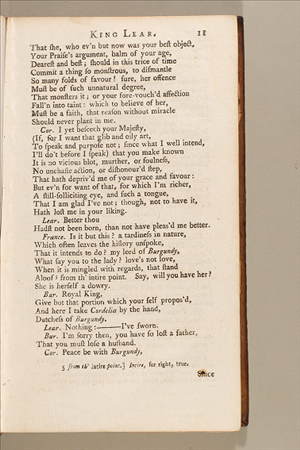 KING LEAR. 11
That ſhe, who ev'n but now was your beſt object,
Your Praiſe's argument, balm of your age,
Deareſt and beſt; ſhould in this trice of time
Commit a thing ſo monſtrous, to diſmantle
So many folds of favour! ſure, her offence
Muſt be of ſuch unnatural degree,
That monſters it; or your fore-vouch'd affection
Fall'n into taint: which to believe of her,
Muſt be a faith, that reaſon without miracle
Should never plant in me.
Cor. I yet beſeech your Majeſty,
(If, for I want that glib and oily art,
To ſpeak and purpoſe not; ſince what I well intend,
I'll do't before I ſpeak) that you make known
It is no vicious blot, murther, or foulneſs,
No unchaſte action, or diſhonour'd ſtep,
That hath depriv'd me of your grace and favour:
But ev'n for want of that, for which I'm richer,
A ſtill-ſolliciting eye, and ſuch a tongue,
That I am glad I've not; though, not to have it,
Hath loſt me in your liking.
Lear. Better thou
Hadſt not been born, than not have pleas'd me better.
France. Is it but this? a tardineſs in nature,
Which often leaves the hiſtory unſpoke,
That it intends to do? my lord of Burgundy,
What ſay you to the lady? love's not love,
When it is mingled with regards, that ſtand
Aloof 5 from th' intire point. Say, will you have her?
She is herſelf a dowry.
Bur. Royal King,
Give but that portion which your ſelf propos'd,
And here I take Cordelia by the hand,
Dutcheſs of Burgundy.
Lear. Nothing:——I've ſworn.
Bur. I'm ſorry then, you have ſo loſt a father,
That you muſt loſe a huſband.
Cor. Peace be with Burgundy,
5 from th' intire point.] Intire, for right, true.
Since